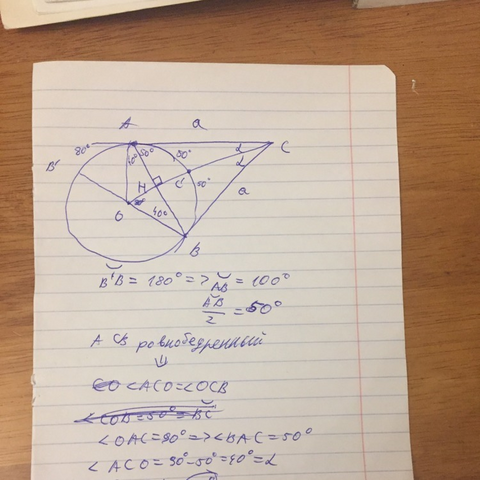 A a
80° 40° 50° 50° α C
B' H C' 50° α a
O 50° 40°
B
B'B = 180° => AB = 100°
AB/2 = 50°
ACB равнобедренный
⇓
CO <ACO=<OCB
<COB=50°=BC
<OAC=90° => <BAC=50°
<ACO=90-50°=40°=α